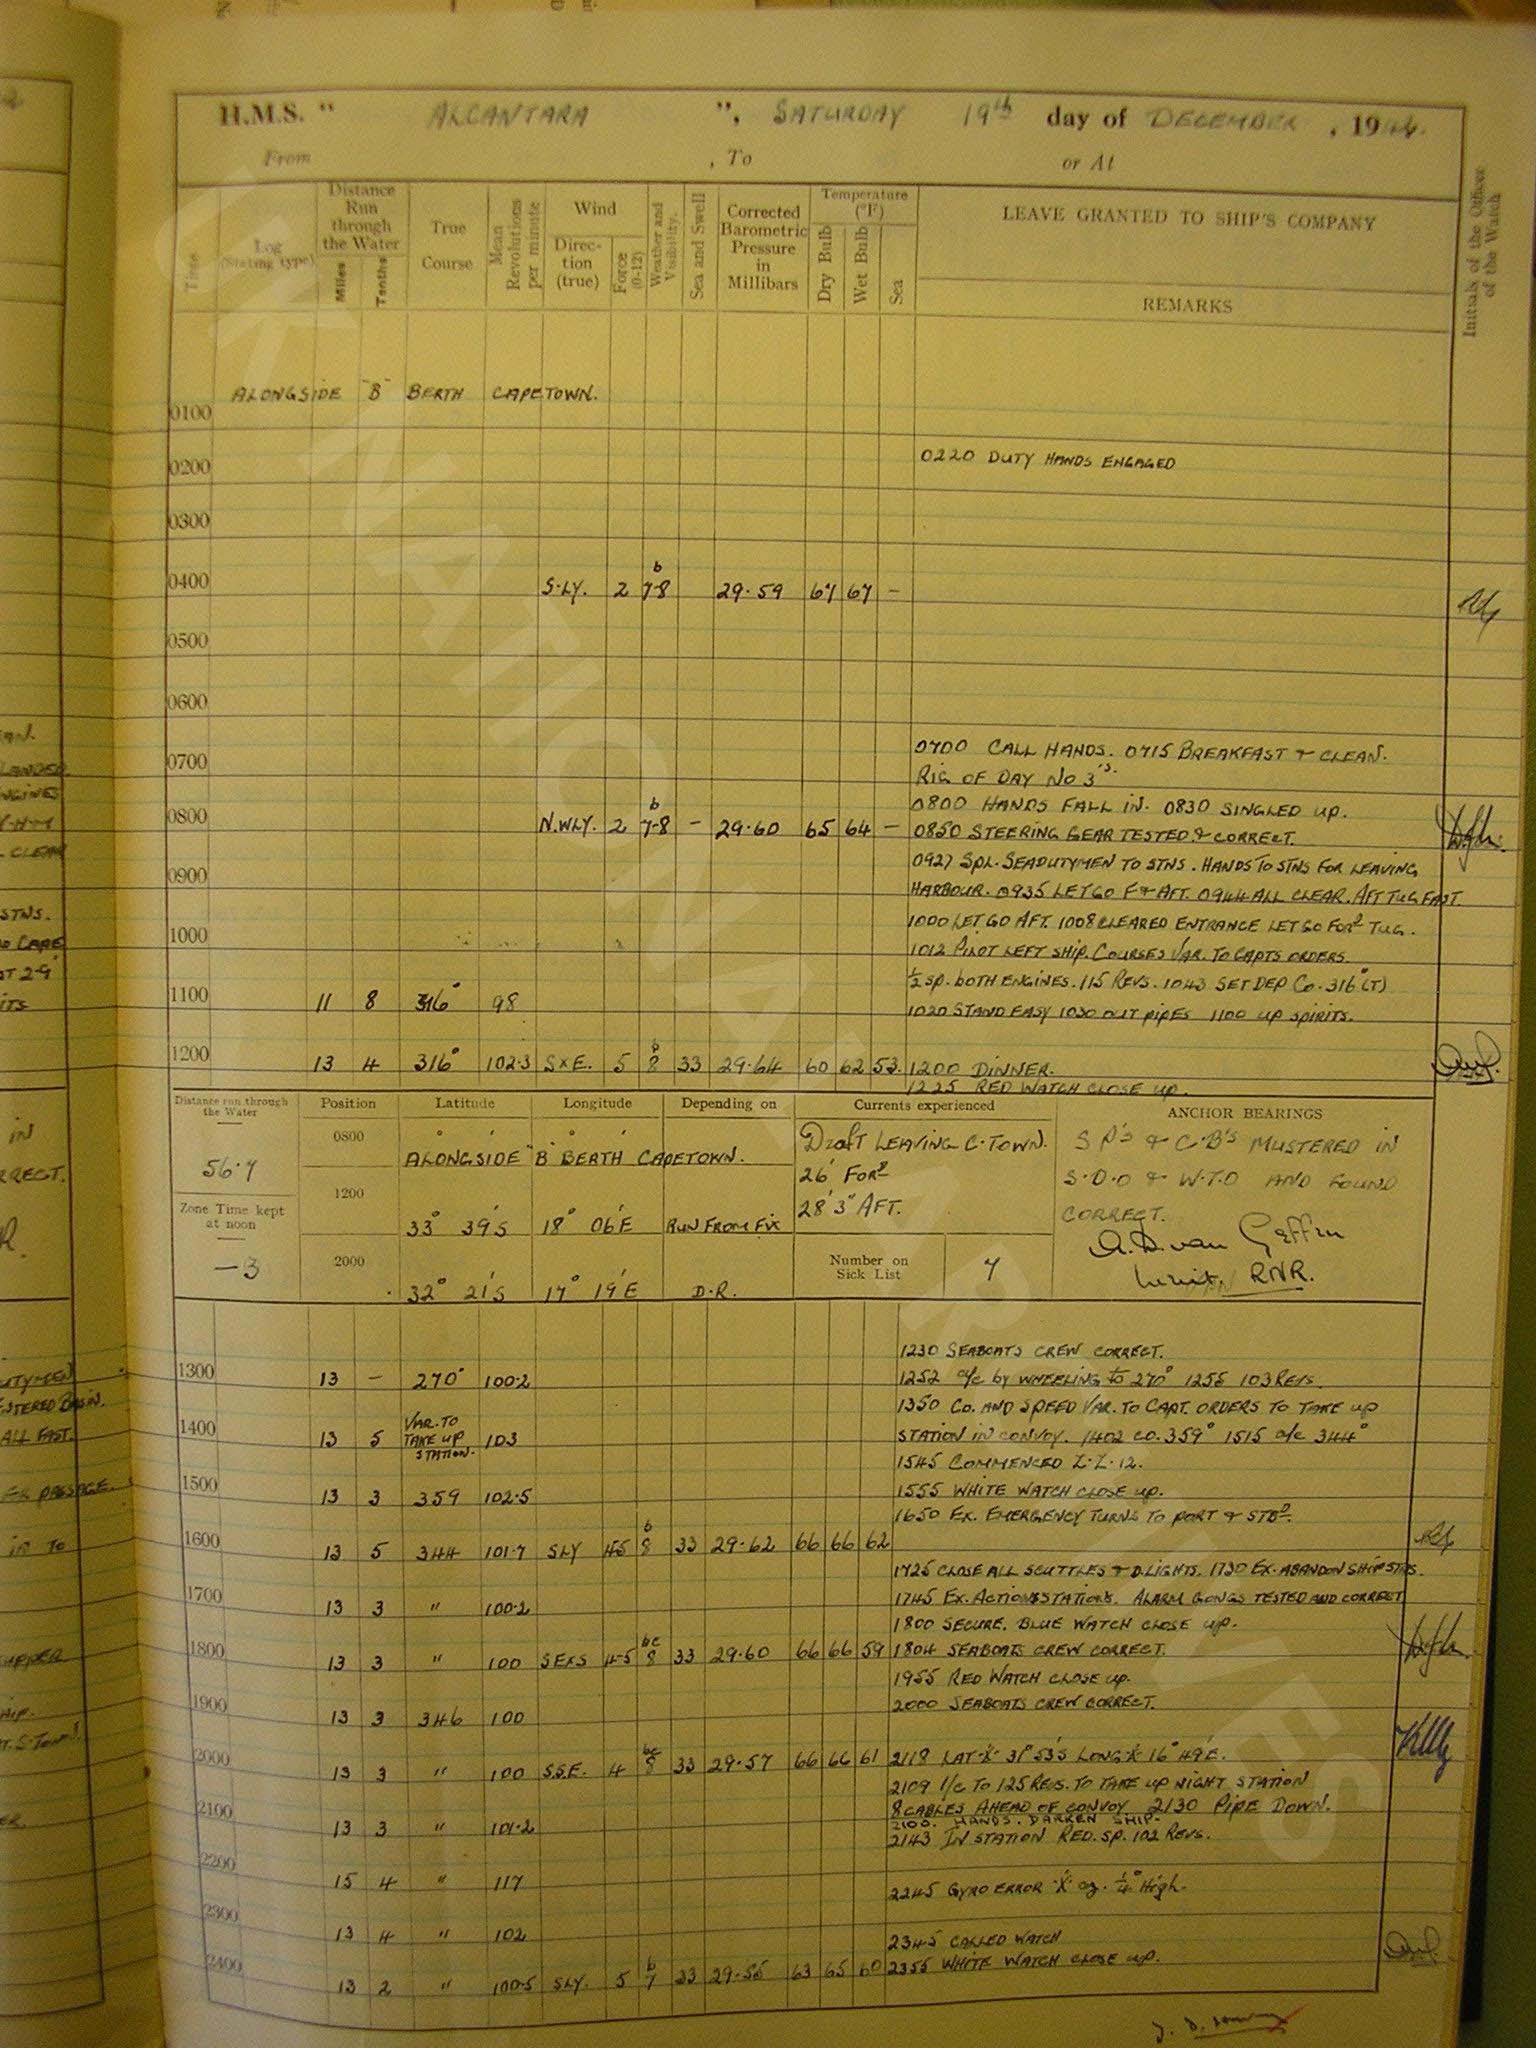 H.M.S. " ALCANTARA ", SATURDAY 19th day of DECEMBER, 19
From , To or At
Time
Log (Stating type)
Distance Run through the Water
Miles Tenths
True Course
Mean Revolutions per minute
Wind
Direction (true)
Force (0-12)
Weather and Visibility.
Sea and Swell
Corrected Barometric Pressure in Millibars
Temperature (°F)
Dry Bulb Wet Bulb Sea
LEAVE GRANTED TO SHIP'S COMPANY
REMARKS
Initials of the Officer of the Watch
ALONGSIDE "B" BERTH CAPETOWN.
0100
0200 0220 DUTY HANDS ENGAGED
0300
0400 S.LY. 2 b 7-8 29.59 67 67 -
0500
0600
0700 0700 CALL HANDS. 0715 BREAKFAST & CLEAN.
RIG OF DAY No 3's.
0800 HANDS FALL IN. 0830 SINGLED UP.
0800 N.WLY. 2 b 7-8 - 29.60 65 64 - 0850 STEERING GEAR TESTED & CORRECT.
0927 SPL. SEADUTYMEN TO STNS. HANDS TO STNS FOR LEAVING
0900 HARBOUR. 0935 LET GO F & AFT. 0944 ALL CLEAR. AFT TUG FAST.
1000 LET GO AFT. 1008 CLEARED ENTRANCE LET GO FORD TUG.
1000 1012 PILOT LEFT SHIP. COURSES VAR. TO CAPTS ORDERS.
½ SP. BOTH ENGINES. 115 REVS. 1043 SET DEP CO. 316°(T)
1100 11 8 316° 98 1020 STAND EASY 1030 OUT PIPES 1100 UP SPIRITS.
1200 13 4 316° 102.3 SxE. 5 b 8 33 29.64 60 62 53. 1200 DINNER.
1225 RED WATCH CLOSE UP.
Distance run through the Water
56.7
Zone Time kept at noon
-3
Position Latitude Longitude Depending on
0800 ALONGSIDE "B" BERTH CAPETOWN.
1200 33° 39'S 18° 06'E RUN FROM FIX
2000 32° 21'S 17° 19'E D.R.
Currents experienced
DRAFT LEAVING C.TOWN.
26' FORD
28'3" AFT.
Number on Sick List 7
ANCHOR BEARINGS
S P's & C.B's MUSTERED IN
S.D.O & W.T.O AND FOUND
CORRECT.
A.D. van Geffen
RNR.
1230 SEABOATS CREW CORRECT.
1300 13 - 270° 100.2 1252 a/c by WHEELING to 270° 1255 103 REVS.
1350 CO. AND SPEED VAR. TO CAPT. ORDERS TO TAKE UP
1400 13 5 VAR. TO TAKE UP STATION. 103 STATION IN CONVOY. 1402 CO. 359° 1515 a/c 344°
1545 COMMENCED Z.Z.12.
1500 13 3 359 102.5 1555 WHITE WATCH CLOSE UP.
1650 EX. EMERGENCY TURNS TO PORT & STBD.
1600 13 5 344 101.7 SLY 4-5 b 8 33 29.62 66 66 62
1725 CLOSE ALL SCUTTLES & D.LIGHTS. 1730 EX. ABANDON SHIP STNS.
1700 13 3 " 100.2 1745 EX. ACTION STATIONS. ALARM GONGS TESTED AND CORRECT
1800 SECURE. BLUE WATCH CLOSE UP.
1800 13 3 " 100 SExS 4-5 bc 8 33 29.60 66 66 59 1804 SEABOATS CREW CORRECT.
1955 RED WATCH CLOSE UP.
1900 13 3 346 100 2000 SEABOATS CREW CORRECT.
2000 13 3 " 100 S.S.E. 4 bc 8 33 29.57 66 66 61 2118 LAT 31° 53'S LONG 16° 49'E.
2109 I/C TO 125 REVS. TO TAKE UP NIGHT STATION
8 CABLES AHEAD OF CONVOY. 2130 PIPE DOWN.
2100. HANDS. DARKEN SHIP.
2100 13 3 " 101.2 2143 IN STATION RED. SP. 102 REVS.
2200 15 4 " 117 2245 GYRO ERROR az. ¼° High.
2300 13 4 " 102 2345 CALLED WATCH
2400 13 2 " 100.5 SLY. 5 b 7 33 29.55 63 65 60 2355 WHITE WATCH CLOSE UP.